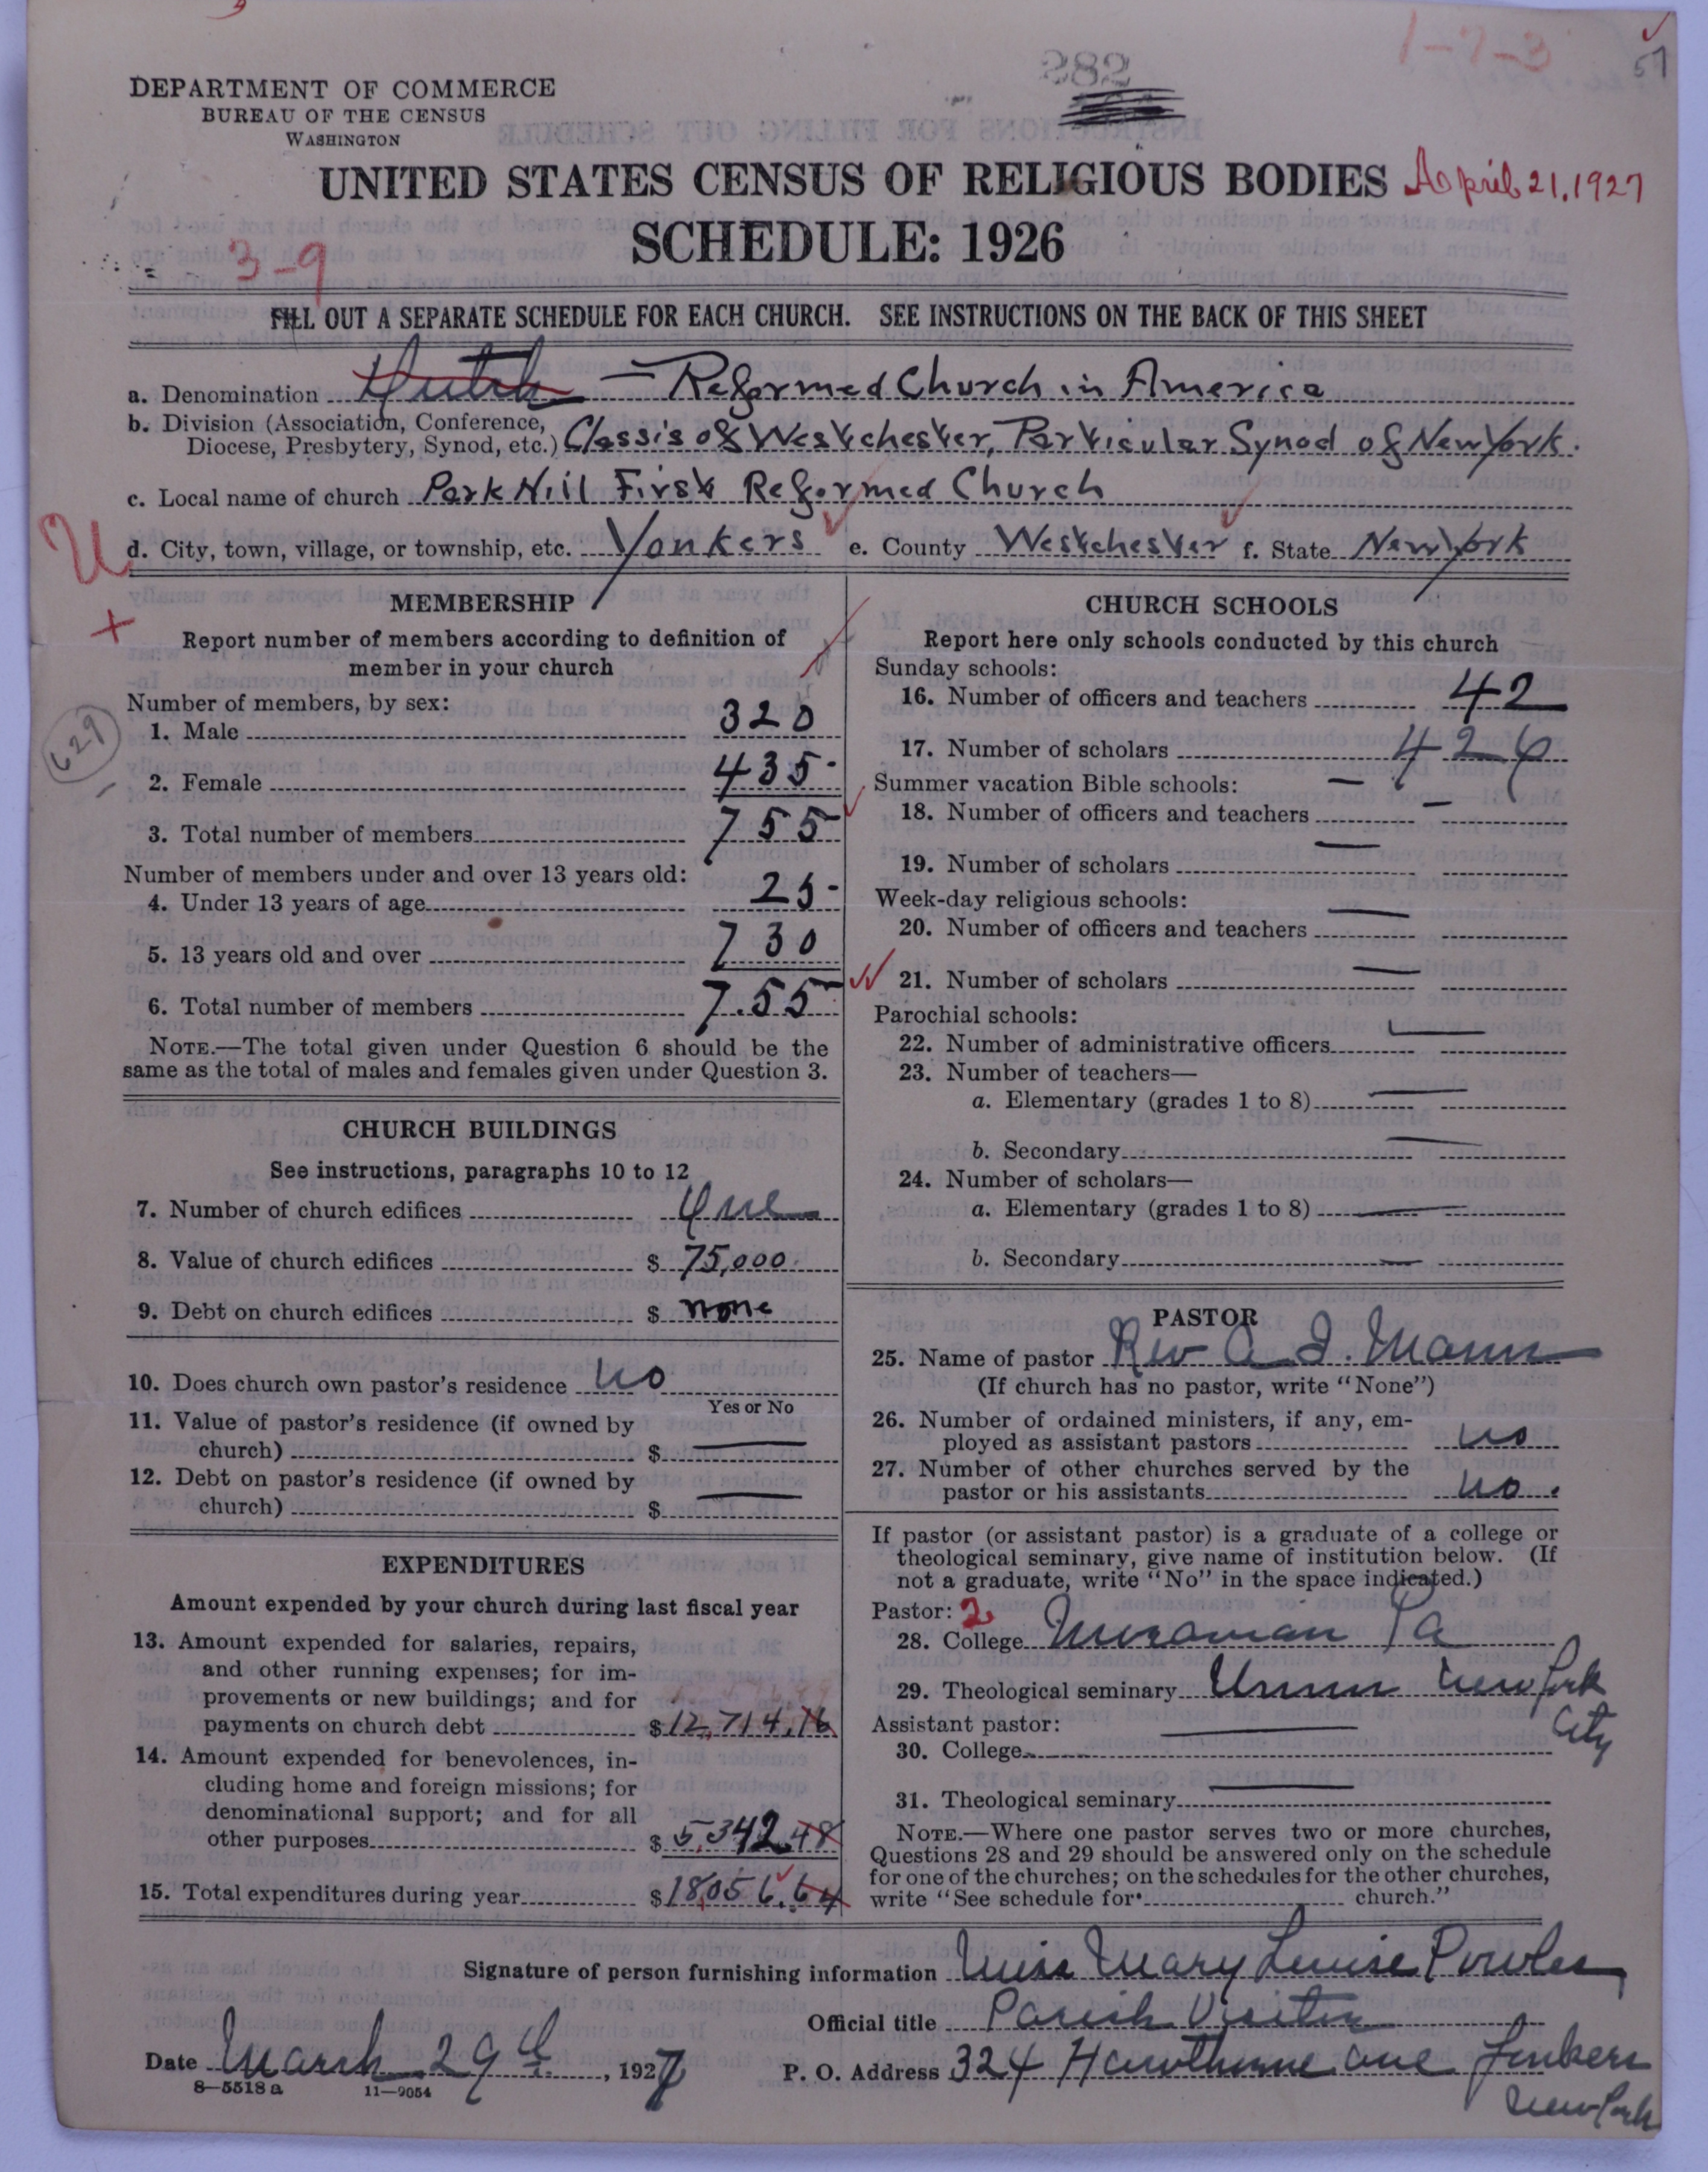 1-7-3
57
282
DEPARTMENT OF COMMERCE
BUREAU OF THE CENSUS
WASHINGTON
UNITED STATES CENSUS OF RELIGIOUS BODIES April 21, 1927
SCHEDULE: 1926
3-9
FILL OUT A SEPARATE SCHEDULE FOR EACH CHURCH. SEE INSTRUCTIONS ON THE BACK OF THIS SHEET
a. Denomination Dutch — Reformed Church in America
b. Division (Association, Conference,
Diocese, Presbytery, Synod, etc.) Classis of Westchester, Particular Synod of New York.
c. Local name of church Park Hill First Reformed Church
d. City, town, village, or township, etc. Yonkers e. County Westchester f. State New York
MEMBERSHIP
Report number of members according to definition of
member in your church
Number of members, by sex:
1. Male 320
629
2. Female 435
3. Total number of members 755
Number of members under and over 13 years old:
4. Under 13 years of age 25
5. 13 years old and over 730
6. Total number of members 755
NOTE.—The total given under Question 6 should be the
same as the total of males and females given under Question 3.
CHURCH BUILDINGS
See instructions, paragraphs 10 to 12
7. Number of church edifices One
8. Value of church edifices $ 75,000
9. Debt on church edifices $ none
10. Does church own pastor's residence no
Yes or No
11. Value of pastor's residence (if owned by
church) $ —
12. Debt on pastor's residence (if owned by
church) $ —
EXPENDITURES
Amount expended by your church during last fiscal year
13. Amount expended for salaries, repairs,
and other running expenses; for im-
provements or new buildings; and for
payments on church debt $ 12,714.16
14. Amount expended for benevolences, in-
cluding home and foreign missions; for
denominational support; and for all
other purposes $ 5,342.48
15. Total expenditures during year $ 18,056.64
CHURCH SCHOOLS
Report here only schools conducted by this church
Sunday schools:
16. Number of officers and teachers 42
17. Number of scholars 426
Summer vacation Bible schools: —
18. Number of officers and teachers —
19. Number of scholars —
Week-day religious schools:
20. Number of officers and teachers —
21. Number of scholars —
Parochial schools:
22. Number of administrative officers —
23. Number of teachers—
a. Elementary (grades 1 to 8) —
b. Secondary —
24. Number of scholars—
a. Elementary (grades 1 to 8) —
b. Secondary —
PASTOR
25. Name of pastor Rev A. I. Mann
(If church has no pastor, write "None")
26. Number of ordained ministers, if any, em-
ployed as assistant pastors no
27. Number of other churches served by the
pastor or his assistants no.
If pastor (or assistant pastor) is a graduate of a college or
theological seminary, give name of institution below. (If
not a graduate, write "No" in the space indicated.)
Pastor: 2
28. College Pa
29. Theological seminary Union New York
City
Assistant pastor: —
30. College
31. Theological seminary —
NOTE.—Where one pastor serves two or more churches,
Questions 28 and 29 should be answered only on the schedule
for one of the churches; on the schedules for the other churches,
write "See schedule for church."
Signature of person furnishing information Miss Mary Louise Powles
Official title Parish Visitor
Date March 29th, 1927 P. O. Address 324 Hawthorne ave Yonkers
New York
8—5518 a 11—9054